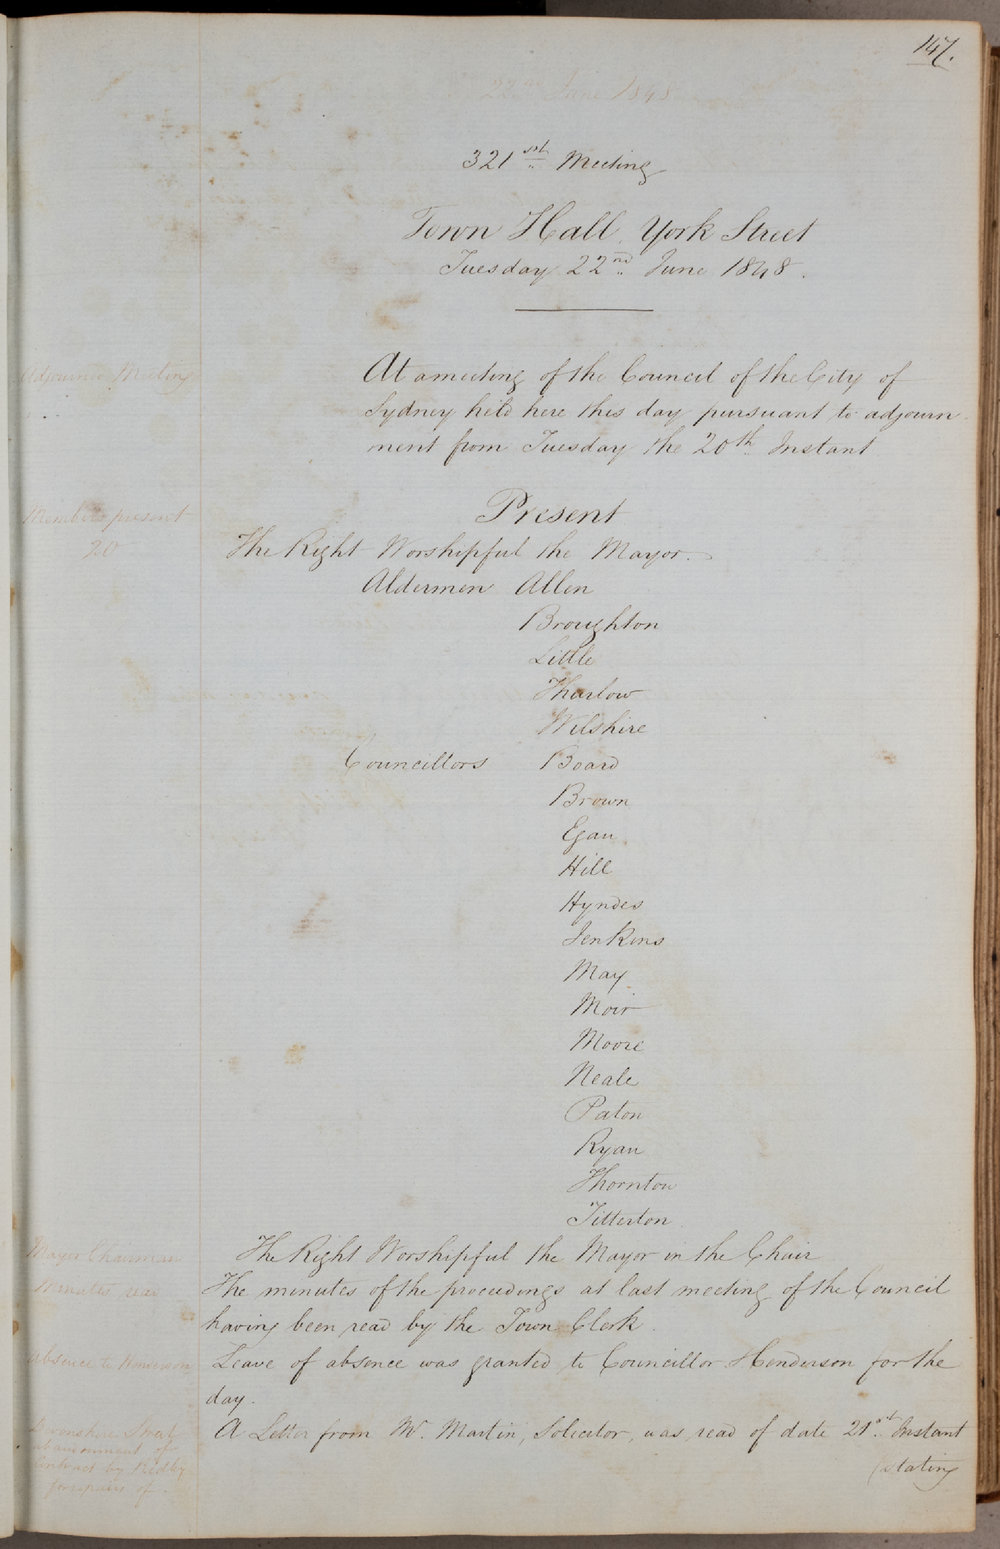 147.
22nd June 1848
321st Meeting
Town Hall, York Street
Tuesday 22nd June 1848.
Adjourned Meeting
At a meeting of the Council of the City of
Sydney held here this day pursuant to adjourn
ment from Tuesday the 20th Instant
Members present
20
Present
The Right Worshipful the Mayor.
Aldermen Allen
Broughton
Little
Thurlow
Wilshire
Councillors Board
Brown
Egan
Hill
Hyndes
Jenkins
May
Moir
Moore
Neale
Paton
Ryan
Thornton
Titterton
Mayor Chairman
The Right Worshipful the Mayor in the Chair
Minutes read
The minutes of the proceedings at last meeting of the Council
having been read by the Town Clerk.
Absence to Henderson
Leave of absence was granted to Councillor Henderson for the
day.
Devonshire Street
abandonment of
Contract by Ridley
for repairs of
A Letter from Mr. Martin, Solicitor, was read of date 21st Instant
(stating